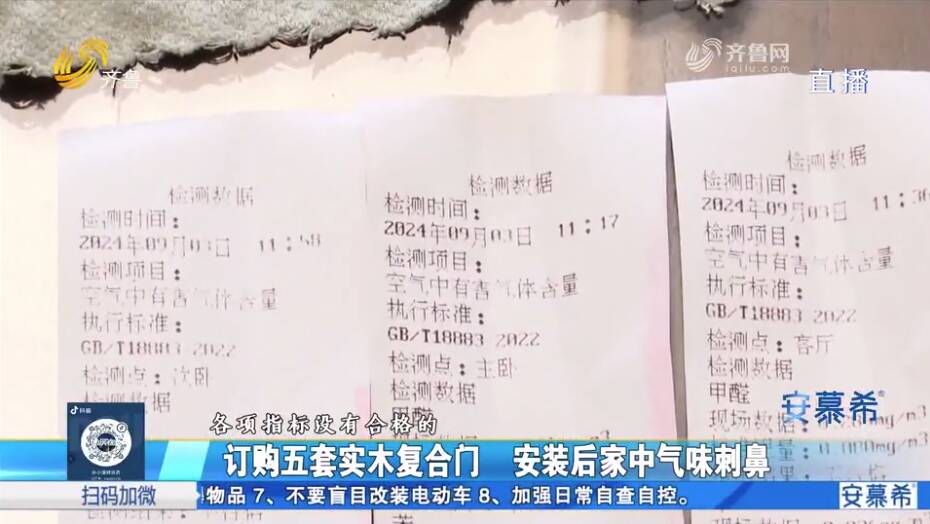 齐鲁
齐鲁网
iqilu.com
直播
检测数据
检测时间：
2024年09月03日 11:58
检测项目：
空气中有害气体含量
执行标准：
GB/T18883 2022
检测点：次卧
检测数据
检测时间：
2024年09月03日 11:17
检测项目：
空气中有害气体含量
执行标准：
GB/T18883 2022
检测点：主卧
检测数据
检测数据
检测时间：
2024年09月03日
检测项目：
空气中有害气体含量
执行标准：
GB/T18883 2022
检测点：客厅
检测数据
甲醛
现场数据
安慕希
抖音
各项指标没有合格的
订购五套实木复合门 安装后家中气味刺鼻
扫码加微
物品 7、不要盲目改装电动车 8、加强日常自查自控。
安慕希